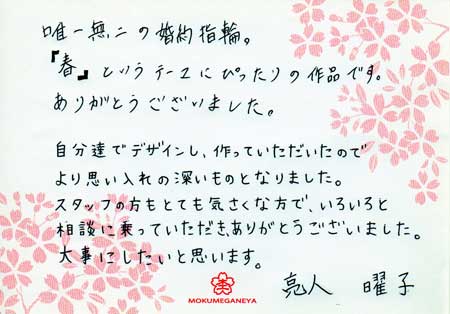 唯一無二の婚約指輪。
『春』というテーマにぴったりの作品です。
ありがとうございました。
自分達でデザインし、作っていただいたので
より思い入れの深いものとなりました。
スタッフの方もとても気さくな方で、いろいろと
相談に乗っていただきありがとうございました。
大事にしたいと思います。
亮人 曜子
MOKUMEGANEYA